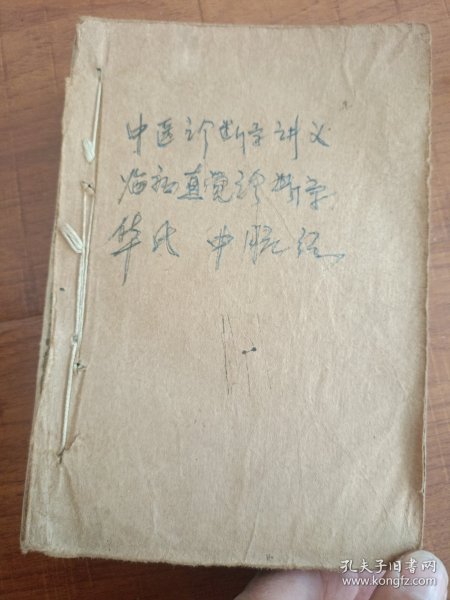 中医诊断学讲义
临证直觉诊断学
华氏 中脏经
孔夫子旧书网
www.kongfz.com